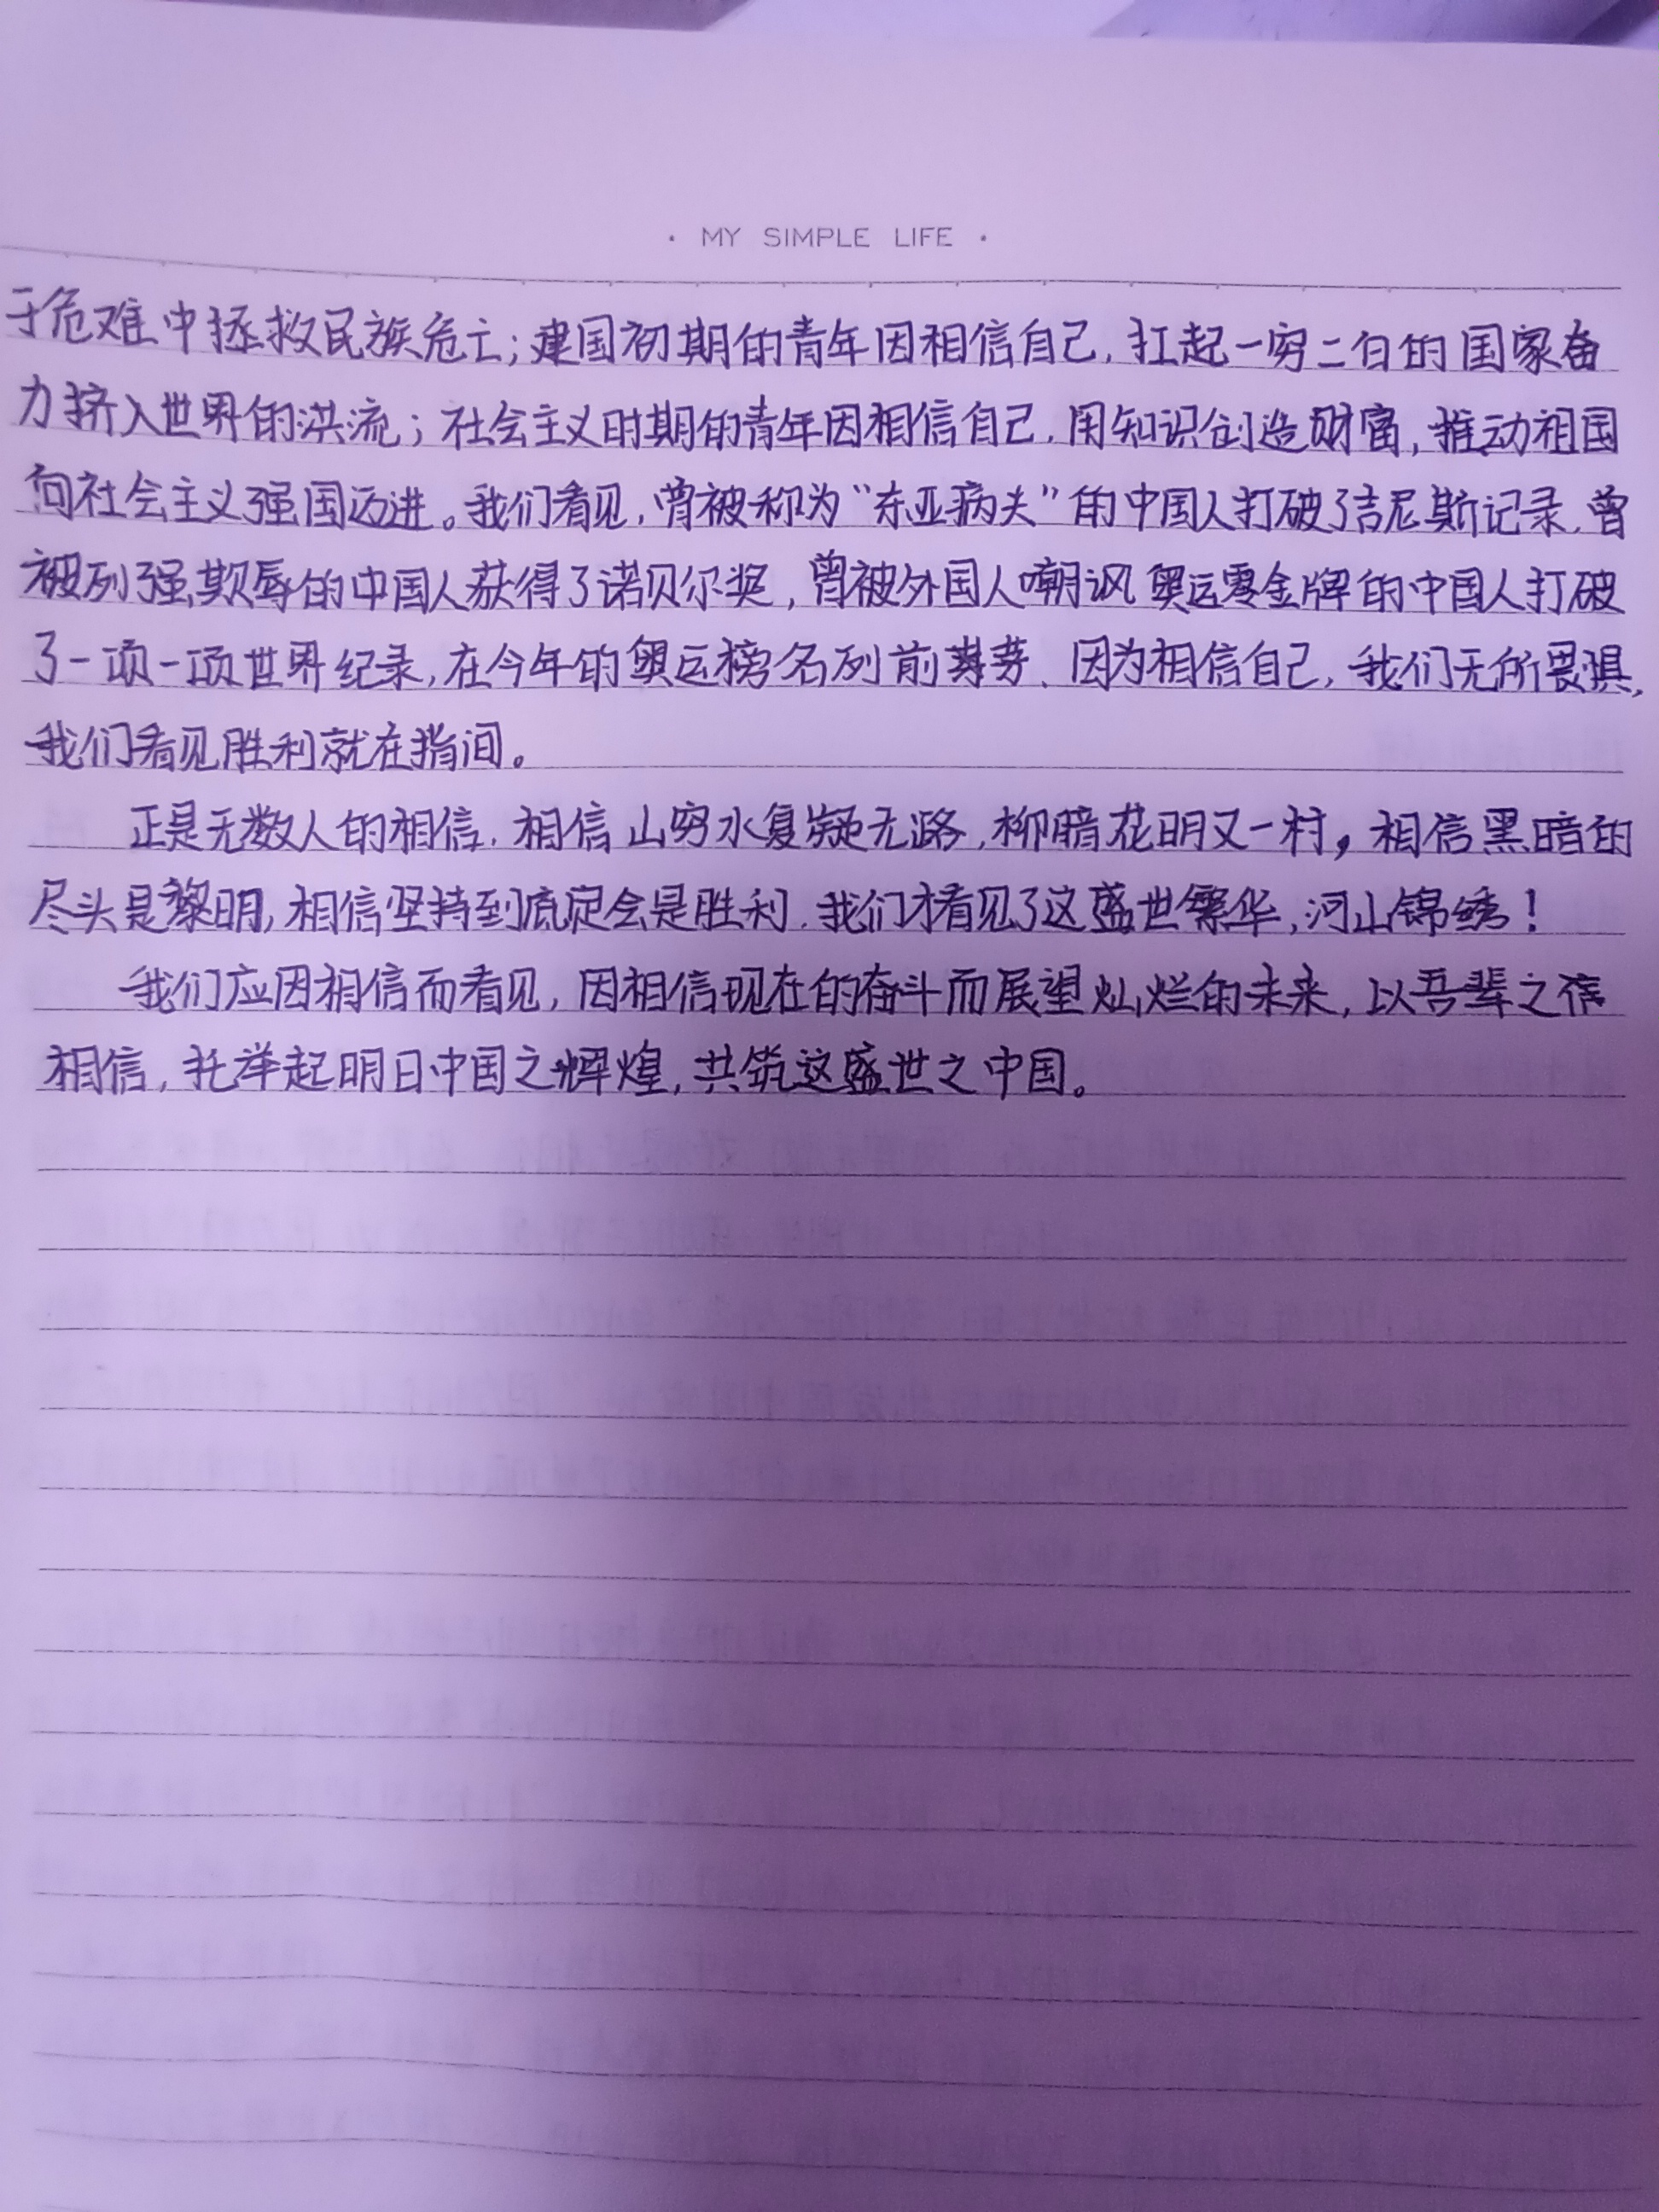 · MY SIMPLE LIFE ·
于危难中拯救民族危亡；建国初期的青年因相信自己，扛起一穷二白的国家奋
力挤入世界的洪流；社会主义时期的青年因相信自己，用知识创造财富，推动祖国
向社会主义强国迈进。我们看见，曾被称为“东亚病夫”的中国人打破了吉尼斯记录，曾
被列强欺辱的中国人获得了诺贝尔奖，曾被外国人嘲讽奥运零金牌的中国人打破
了一项一项世界纪录，在今年的奥运榜名列前茅、因为相信自己，我们无所畏惧，
我们看见胜利就在指间。
正是无数人的相信，相信山穷水复疑无路，柳暗花明又一村，相信黑暗的
尽头是黎明，相信坚持到底定会是胜利，我们才看见了这盛世繁华，河山锦绣！
我们应因相信而看见，因相信现在的奋斗而展望灿烂的未来，以吾辈之
相信，托举起明日中国之辉煌，共筑这盛世之中国。